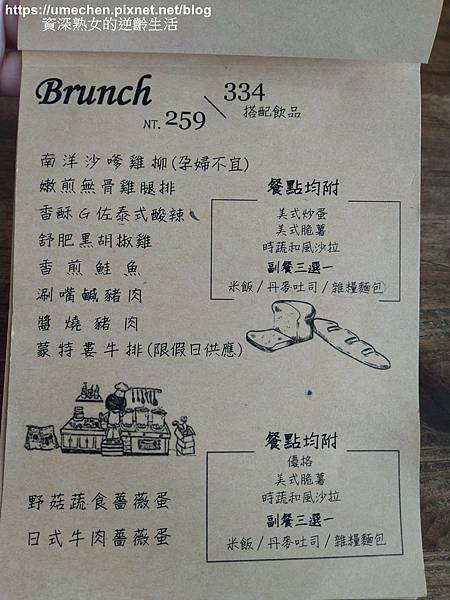 https://umechen.pixnet.net/blog
資深熟女的逆齡生活
Brunch NT. 259 \ 334
搭配飲品
南洋沙嗲雞柳(孕婦不宜)
嫩煎無骨雞腿排
香酥G佐泰式酸辣
舒肥黑胡椒雞
香煎鮭魚
涮嘴鹹豬肉
醬燒豬肉
蒙特婁牛排(限假日供應)
餐點均附
美式炒蛋
美式脆薯
時蔬和風沙拉
副餐三選一
米飯/丹麥吐司/雜糧麵包
野菇蔬食薔薇蛋
日式牛肉薔薇蛋
餐點均附
優格
美式脆薯
時蔬和風沙拉
副餐三選一
米飯/丹麥吐司/雜糧麵包